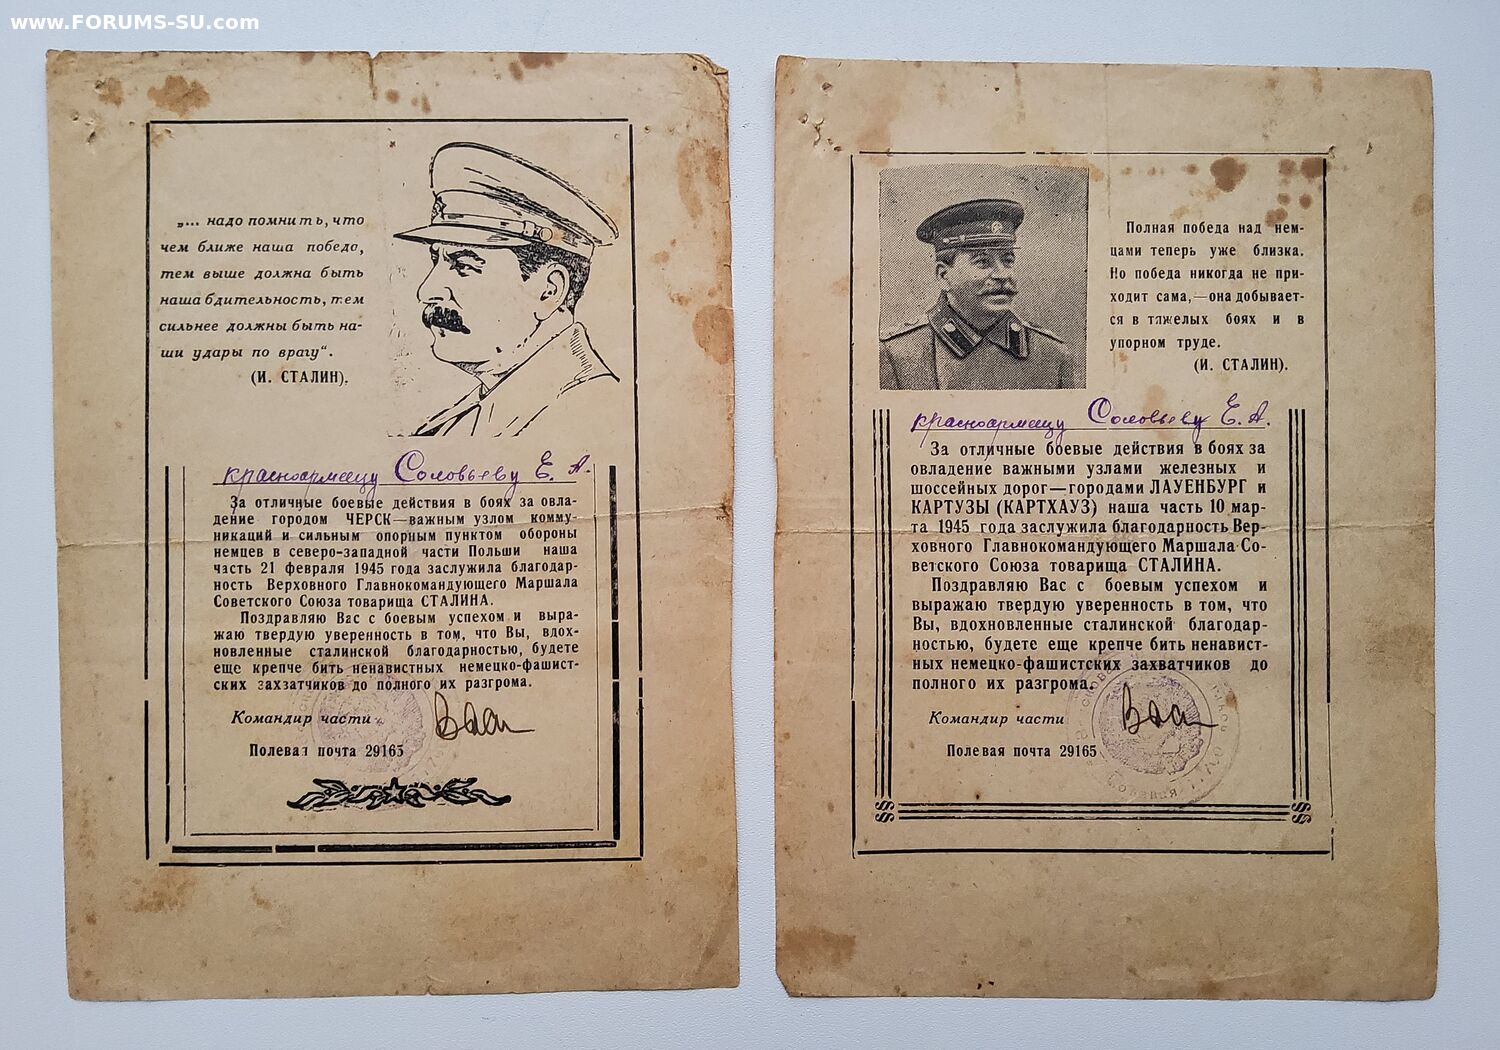 www.FORUMS-SU.com
„... надо помнить, что
чем ближе наша победа,
тем выше должна быть
наша бдительность, тем
сильнее должны быть на-
ши удары по врагу".
(И. СТАЛИН).
красноармейцу Соловьеву Е. А.
За отличные боевые действия в боях за овла-
дение городом ЧЕРСК—важным узлом комму-
никаций и сильным опорным пунктом обороны
немцев в северо-западной части Польши наша
часть 21 февраля 1945 года заслужила благодар-
ность Верховного Главнокомандующего Маршала
Советского Союза товарища СТАЛИНА.
Поздравляю Вас с боевым успехом и выра-
жаю твердую уверенность в том, что Вы, вдох-
новленные сталинской благодарностью, будете
еще крепче бить ненавистных немецко-фашист-
ских захватчиков до полного их разгрома.
Командир части
Полевая почта 29165
Полная победа над нем-
цами теперь уже близка.
Но победа никогда не при-
ходит сама,—она добывает-
ся в тяжелых боях и в
упорном труде.
(И. СТАЛИН).
красноармейцу Соловьеву Е. А.
За отличные боевые действия в боях за
овладение важными узлами железных и
шоссейных дорог—городами ЛАУЕНБУРГ и
КАРТУЗЫ (КАРТХАУЗ) наша часть 10 мар-
та 1945 года заслужила благодарность Вер-
ховного Главнокомандующего Маршала Со-
ветского Союза товарища СТАЛИНА.
Поздравляю Вас с боевым успехом и
выражаю твердую уверенность в том, что
Вы, вдохновленные сталинской благодар-
ностью, будете еще крепче бить ненавист-
ных немецко-фашистских захватчиков до
полного их разгрома.
Командир части
Полевая почта 29165